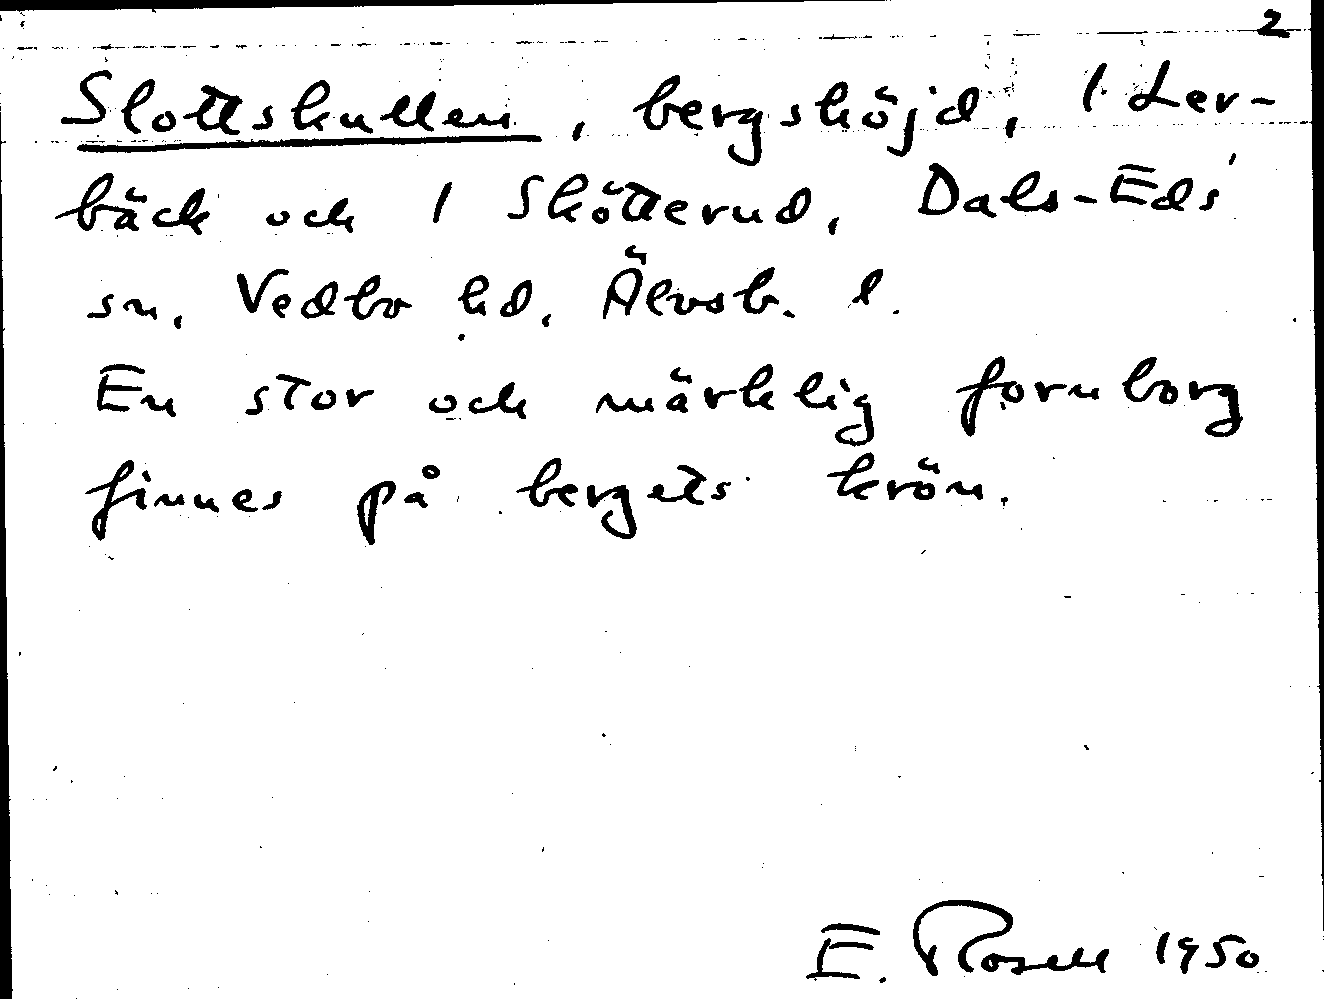 2
Slottskullen, bergshöjd, 1 Ler-
bäck och 1 Skötterud, Dals-Eds'
sn, Vedbo hd, Älvsb. l.
En stor och märklig fornborg
finnes på bergets krön.
E. Rosell 1950